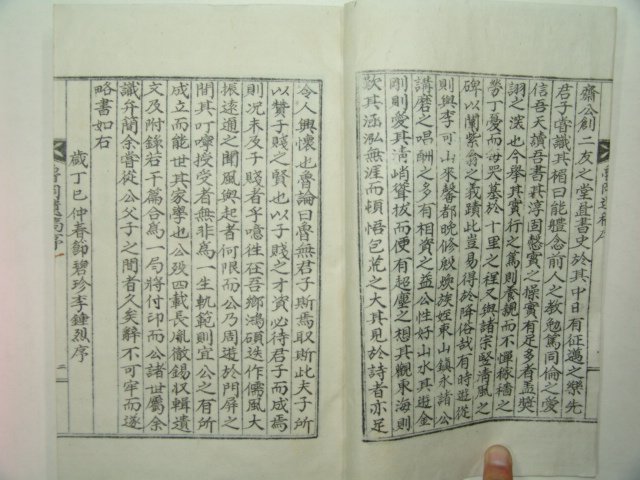 齋公創二友之堂置書史於其中日有征邁之樂先
君子嘗識其楣曰能體念前人之敎勉篤同倫之愛
信吾天讀吾書其淳固懇實之操實有足多者盖奬
詡之深也今擧其實行之篤則養親而不憚稼穡之
勞丁憂而每哭墓於十里之程又與諸宗竪淸風之
碑以闡紫翁之義蹟此豈易得於降俗哉有時遊從
則與李可山來馨都晩修殷煥族姪東山鎭永諸公
講磨之唱酬之多有相資之益公性好山水其遊金
剛則愛其淸峭聳拔而便有超塵之想其觀東海則
歎其涵泓無涯而頓悟包荒之大其見於詩者亦足
令人興懷也魯論曰魯無君子斯焉取斯此夫子所
以贊子賤之賢也以子賤之才資必待君子而成焉
則况未及子賤者乎噫徃在吾鄕鴻碩迭作儒風大
振遠邇之聞風興起者何限而公乃周遊於門屛之
間其叮嚀授受者無非爲一生軌範則宜公之有所
成立而能世其家學也公歿四載長胤徹錫收輯遺
文及附錄若干篇合爲一局將付印而公諸世屬余
識弁簡余嘗從公父子之間者久矣辭不可牢而遂
略書如右
歲丁巳仲春節碧珍李鍾烈序